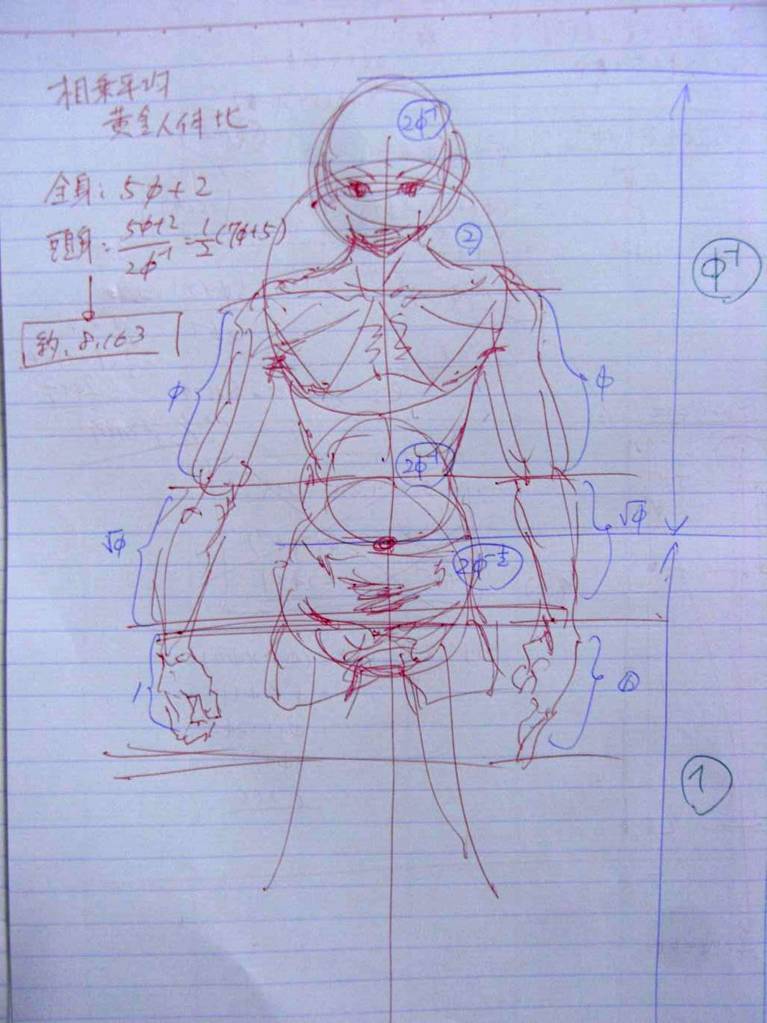 相乗平均
黄金人体比
全身: 5φ+2
頭身: (5φ+2)/(2φ⁻¹) = 1/2(7φ+5)
約, 8.163
2φ⁻¹
②
φ⁻¹
φ
φ
2φ⁻¹
√φ
√φ
2φ^(-1/2)
1
①
1